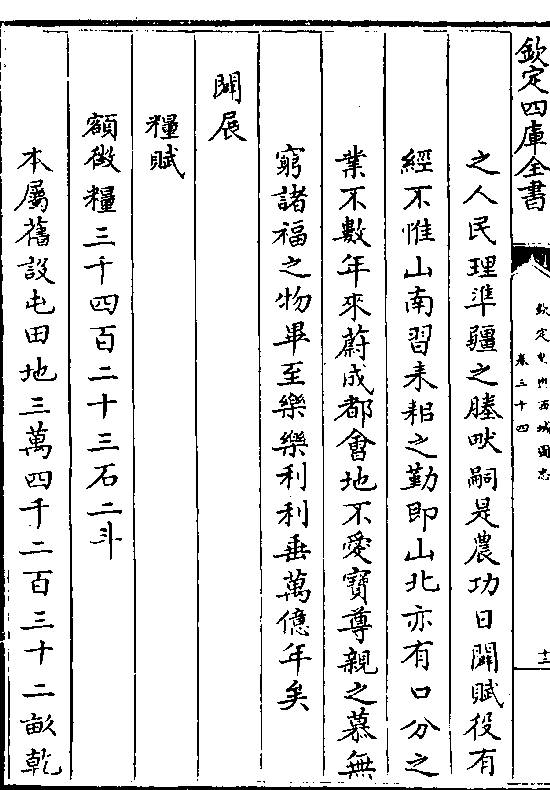 欽定四庫全書
欽定皇輿西域圖志
卷三十四
十二
之人民理準疆之塍畎嗣是農功日闢賦役有
經不惟山南習耒耜之勤即山北亦有口分之
業不數年來蔚成都會地不愛寶尊親之慕無
窮諸福之物畢至樂樂利利垂萬億年矣
闢展
糧賦
額徵糧三千四百二十三石二斗
本屬舊設屯田地三萬四千二百三十二畝乾